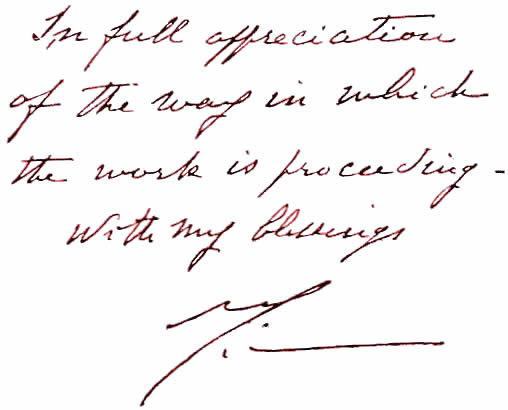 In full appreciation
of the way in which
the work is proceeding -
With my blessings